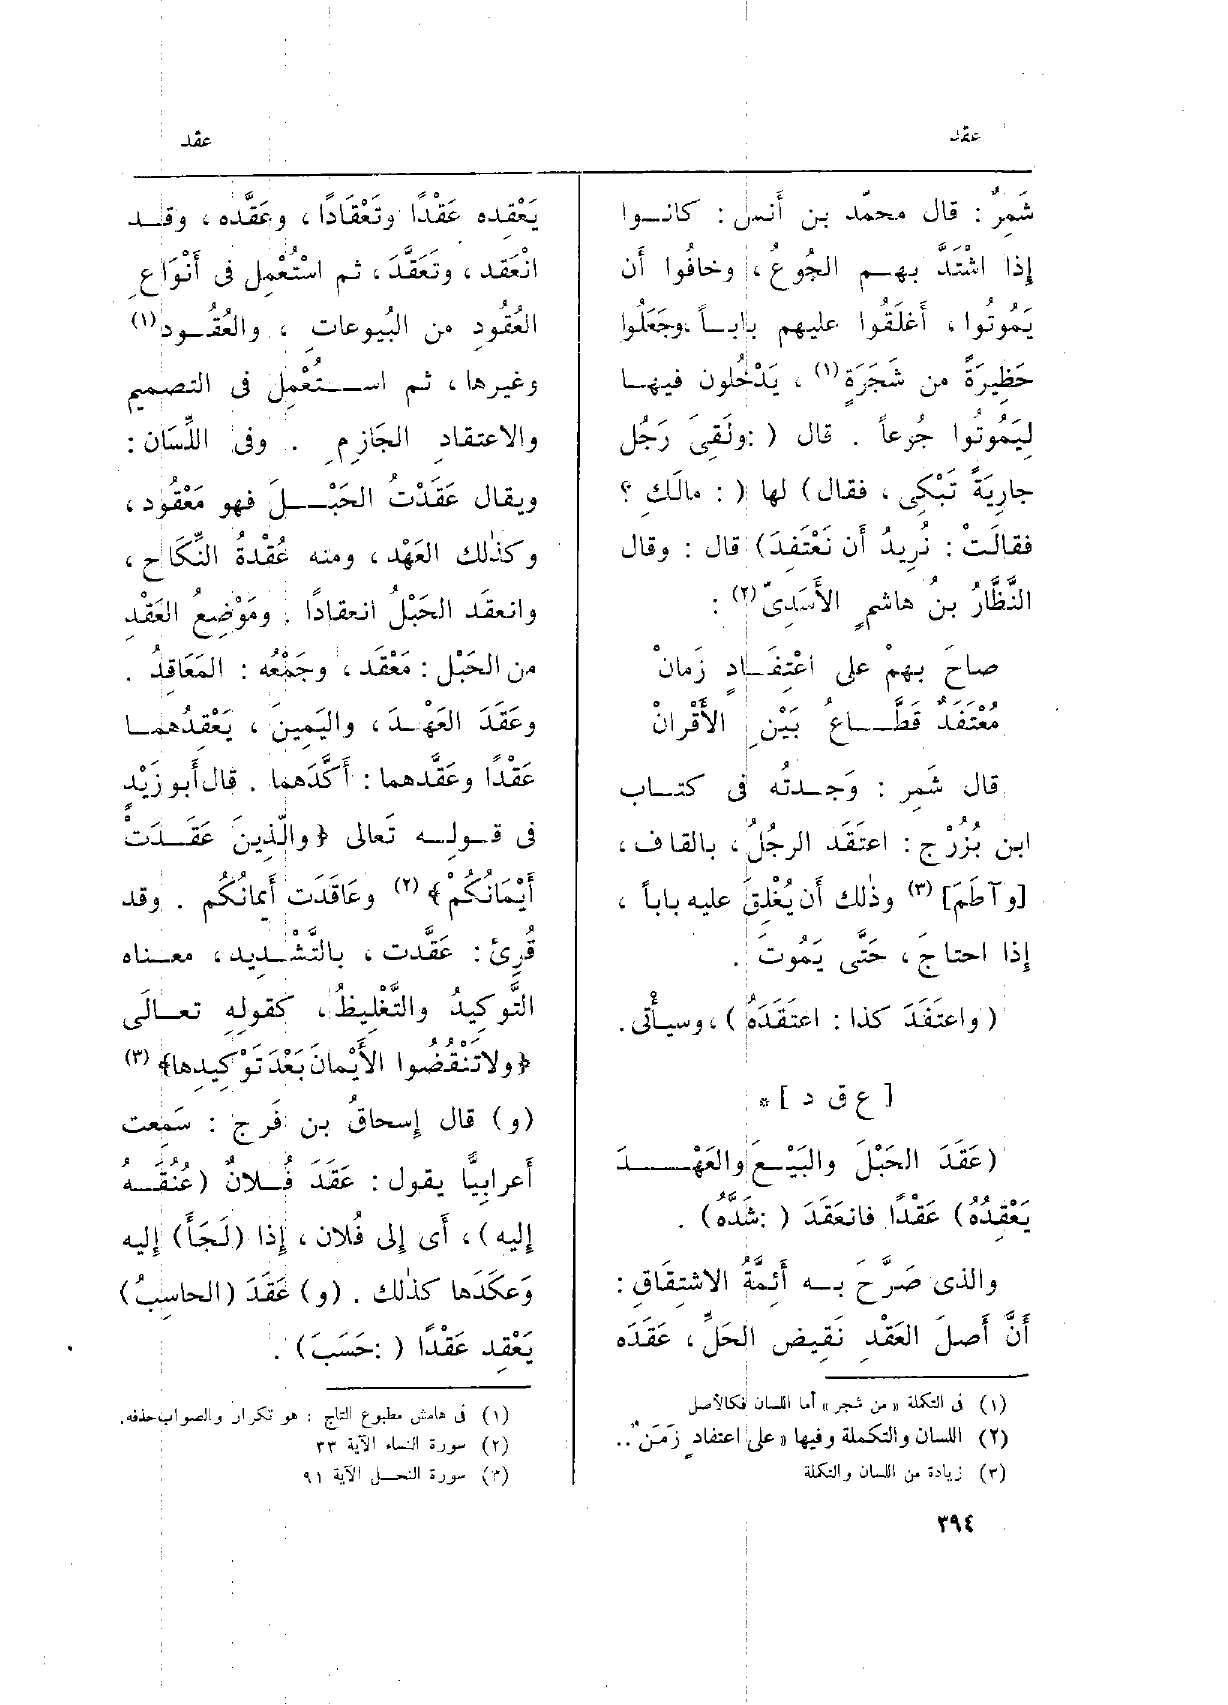 عقد
عقد
شَمِرٌ : قال محمّد بن أَنس : كانوا
إِذا اشْتَدَّ بهم الجُوعُ ، وخافُوا أَن
يَمُوتُوا ، أَغلَقُوا عليهم باباً ، وجَعَلُوا
حَظِيرَةً من شَجَرَةٍ (١) ، يَدْخُلون فيها
لِيَمُوتُوا جُوعاً . قال ( : ولَقِىَ رَجُل
جارِيَةً تَبْكِى ، فقال) لها ( : مالَكِ ؟
فقالَتْ : نُرِيدُ أَن نَعْتَفِدَ) قال : وقال
النَّظَّارُ بنُ هاشمٍ الأَسَدِىّ (٢) :
صاحَ بهمْ على اعْتِفَادٍ زَمانْ
مُعْتَفِدٌ قَطَّاعُ بَيْنِ الأَقْرانْ
قال شَمِر : وَجدتُه فى كتاب
ابن بُزُرْج : اعتَقَد الرجُلُ ، بالقاف ،
[و آطَمَ] (٣) وذٰلك أَن يُغْلِقَ عليه باباً ،
إِذا احتاجَ ، حَتَّى يَمُوتَ .
( واعتَفَدَ كذا : اعتَقَدَهُ ) ، وسيأْتى .
[ ع ق د ] *
(عَقَدَ الحَبْلَ والبَيْعَ والعَهْدَ
يَعْقِدُهُ) عَقْدًا فانعَقَدَ ( : شَدَّه) .
والذى صَرَّحَ به أَئمَّةُ الاشتِقَاقِ :
أَنَّ أَصلَ العَقْدِ نَقِيض الحَلِّ ، عَقَدَه
(١) فى التكملة « من شجر » أما اللسان فكالأصل
(٢) اللسان والتكملة وفيها « على اعتفادٍ زَمَنْ » ..
(٣) زيادة من اللسان والتكملة
يَعْقِده عَقْدًا وتَعْقَادًا ، وعَقَّده ، وقد
انْعَقد ، وتَعَقَّدَ ، ثم اسْتُعْمِل فى أَنْوَاعِ
العُقُودِ من البُيوعاتِ ، والعُقُود (١)
وغيرها ، ثم استُعْمِل فى التصميم
والاعتقادِ الجَازِمِ . وفى اللِّسَان :
ويقال عَقَدْتُ الحَبْلَ فهو مَعْقُود ،
وكذٰلك العَهْد ، ومنه عُقْدَةُ النِّكَاحِ ،
وانعقَد الحَبْلُ انعقادًا . ومَوْضِعُ العَقْدِ
من الحَبْل : مَعْقَد ، وجَمْعُه : المَعَاقِدُ .
وعَقَدَ العَهْدَ ، واليَمِينَ ، يَعْقِدُهما
عَقْدًا وعَقَّدهما : أَكَّدَهما . قال أَبو زَيْدٍ
فى قولِه تَعالى ﴿ والَّذِينَ عَقَدَتْ
أَيْمَانُكُمْ ﴾ (٢) وعَاقَدَت أَيمانُكُم . وقد
قُرِئَ : عَقَّدت ، بالتَّشْدِيد ، معناه
التَّوكيدُ والتَّغْلِيظُ ، كقولِهِ تعالَى
﴿ ولا تَنْقُضُوا الأَيْمانَ بَعْدَ تَوْكِيدِها ﴾ (٣)
(و) قال إِسحاقُ بن فَرج : سَمِعت
أَعرابِيًّا يقول : عَقَدَ فُلانٌ (عُنُقَه
إِليه) ، أَى إِلى فُلان ، إِذا (لَجَأَ) إِليه
وَعكَدَها كذٰلك . (و) عَقَدَ (الحاسِبُ)
يَعْقِد عَقْدًا ( : حَسَبَ) .
(١) فى هامش مطبوع التاج : هو تكرار والصواب حذفه .
(٢) سورة النساء الآية ٣٣
(٣) سورة النحل الآية ٩١
٣٩٤